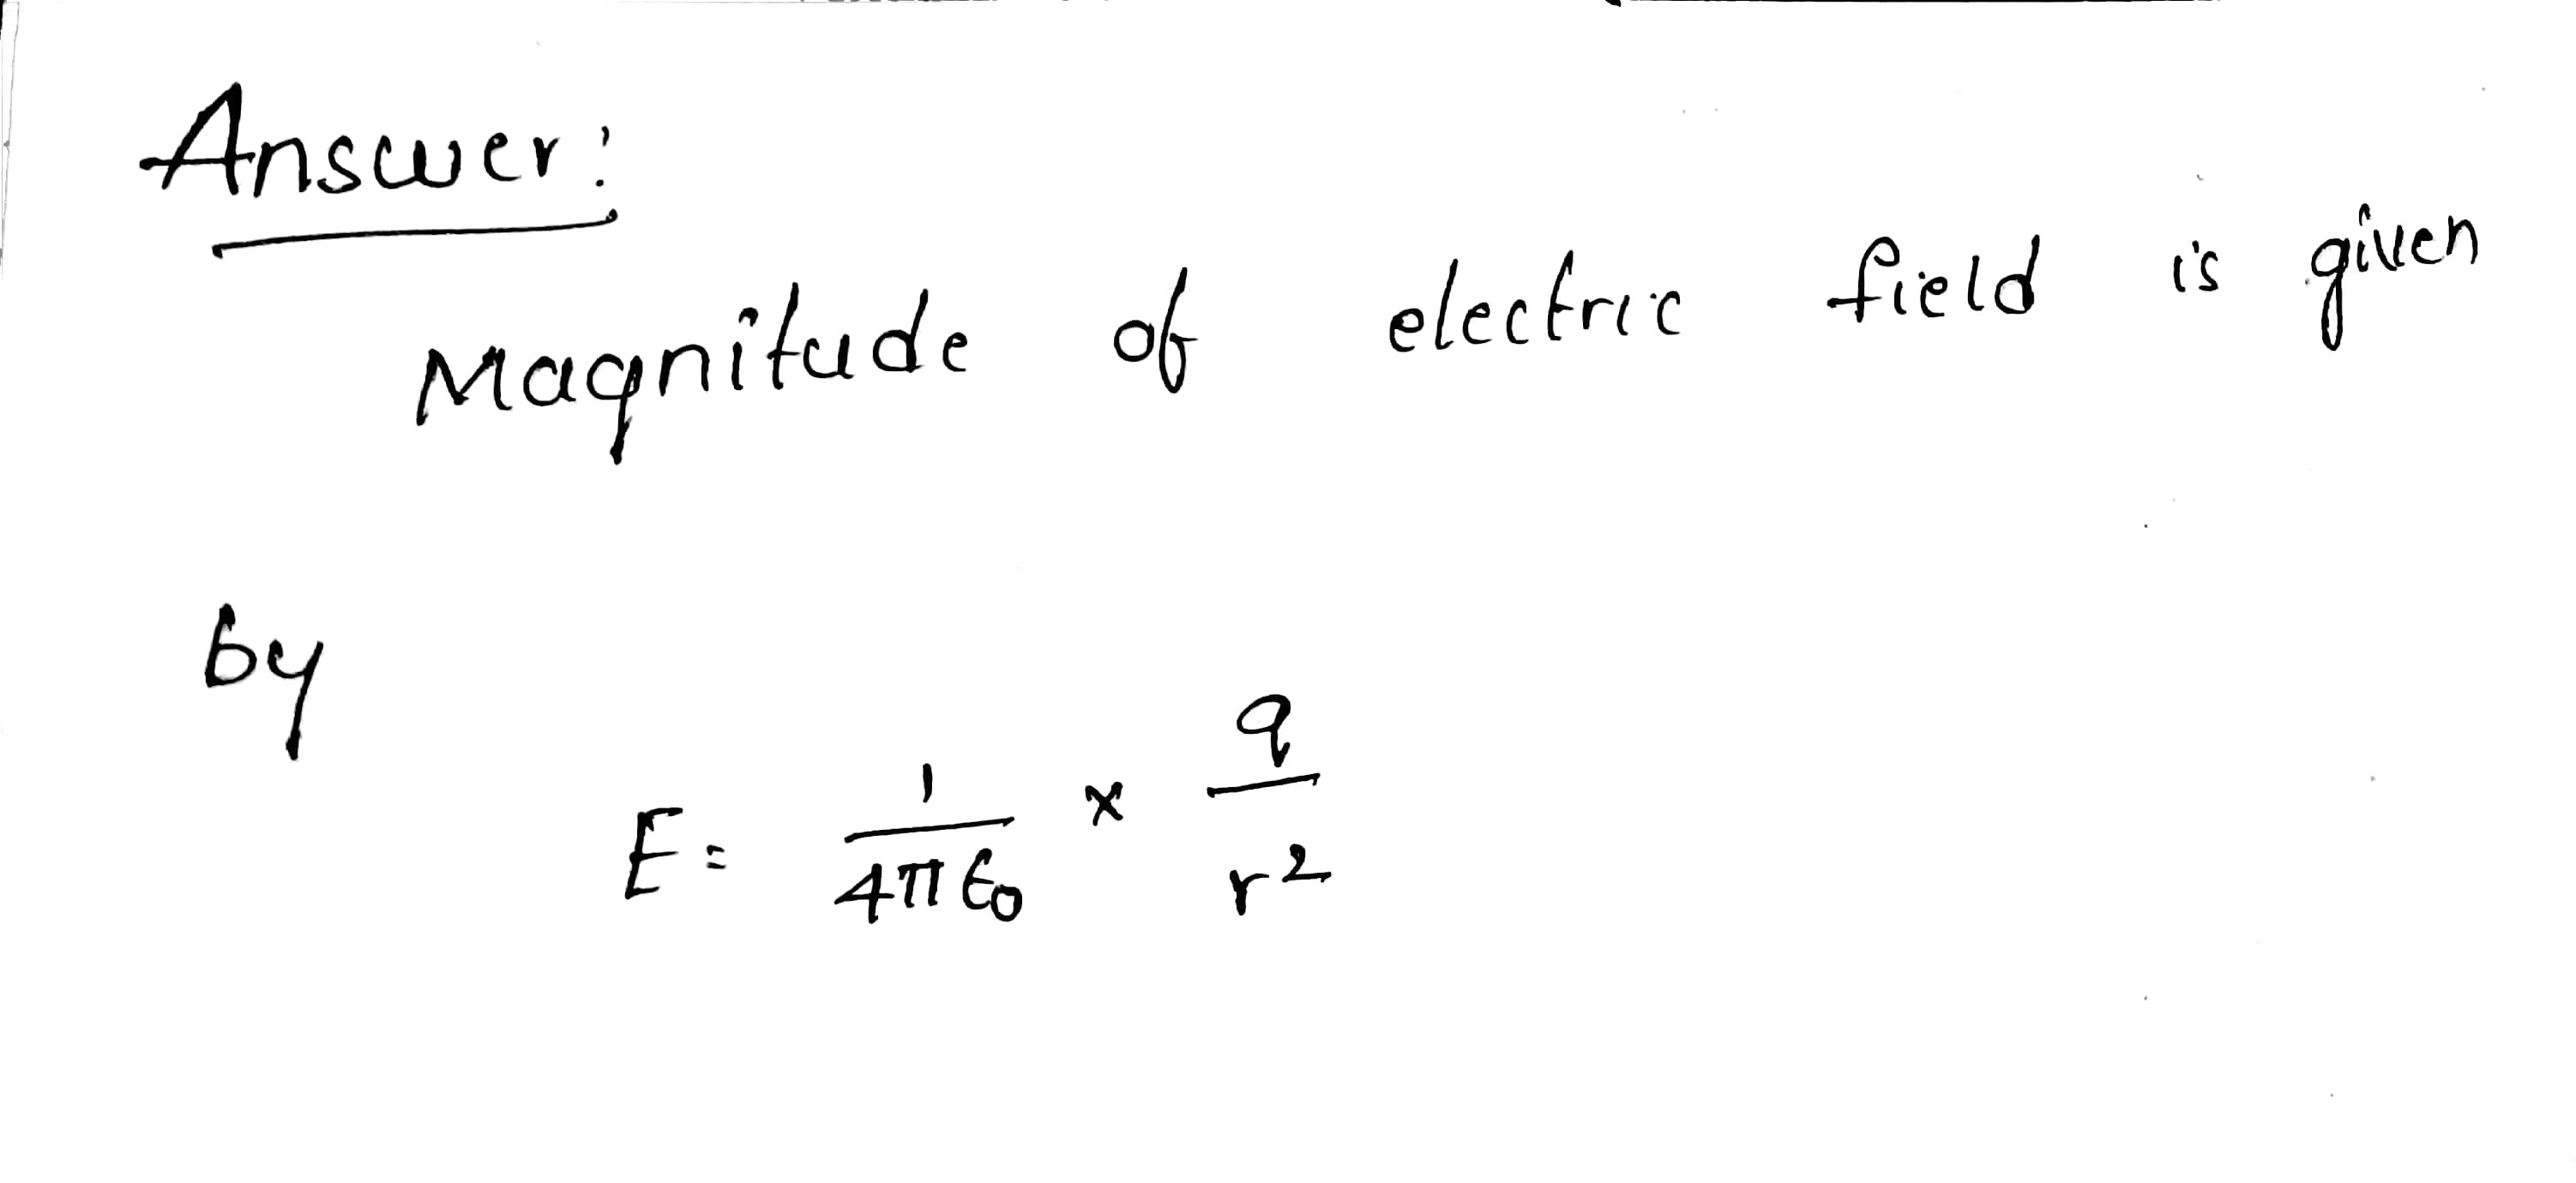 Answer:
Magnitude of electric field is given
by
E = 1/4πε₀ × q/r²